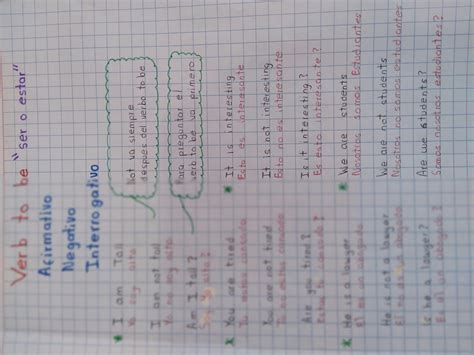 Verb to be "ser o estar"
Afirmativo
Negativo
Interrogativo
* I am Tall
Yo soy alto
I am not tall
Yo no soy alto
Am I tall?
Soy Yo alto?
Not va siempre
despues del verbo to be.
Para preguntar el
verbo to be va primero
* You are tired
Tu estas cansado
You are not tired
Tu no estas cansado
Are you tired?
Estas tu cansado?
* It is interesting
Esto es interesante
It is not interesting
Esto no es interesante
Is it interesting?
Es esto interesante?
* He is a lawyer
El es un abogado
He is not a lawyer
El no es un abogado
Is he a lawyer?
Es el un abogado?
* We are students
Nosotros somos Estudiantes
We are not students
Nosotros no somos estudiantes
Are we students?
Somos nosotros estudiantes?